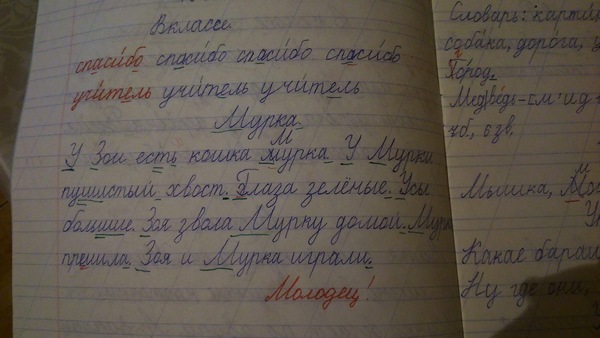 В классе.
спаси́бо спаси́бо спаси́бо спаси́бо
учи́тель учи́тель учи́тель
Мурка.
М
У Зои есть кошка мурка. У Мурки
пушистый хвост. Глаза зелёные. Усы
большие. Зоя звола Мурку домой. Мурк
прешила. Зоя и Мурка играли.
Молодец!
Слова́рь: карти́
соба́ка, доро́га, у
Го́род.
Медве́дь
Мышка, М
Какае бараш
Ну где они,